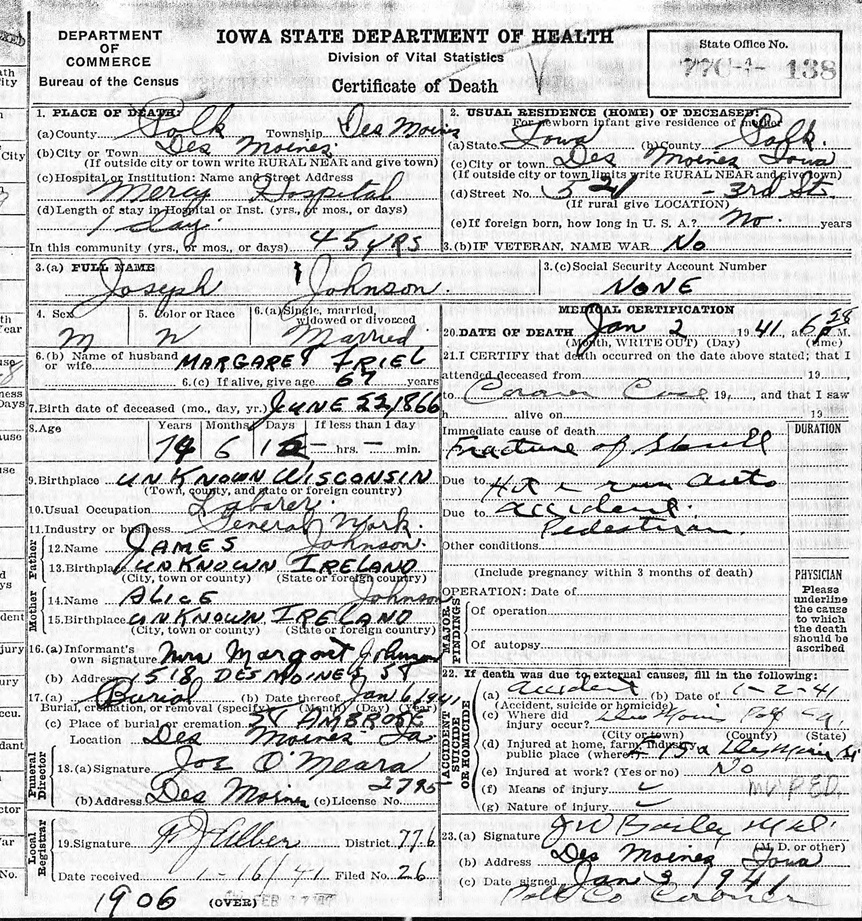 DEPARTMENT OF COMMERCE
Bureau of the Census
IOWA STATE DEPARTMENT OF HEALTH
Division of Vital Statistics
Certificate of Death
State Office No.
138
1. PLACE OF DEATH:
(a) County Polk Township Des Moines
(b) City or Town Des Moines
(If outside city or town write RURAL NEAR and give town)
(c) Hospital or Institution: Name and Street Address
Mercy Hospital
(d) Length of stay in Hospital or Inst. (yrs., or mos., or days)
1 day.
In this community (yrs., or mos., or days) 45 YRS
2. USUAL RESIDENCE (HOME) OF DECEASED:
For newborn infant give residence of mother
(a) State Iowa (b) County Polk.
(c) City or town Des Moines Iowa
(If outside city or town limits write RURAL NEAR and give town)
(d) Street No. 521 - 3rd St.
(If rural give LOCATION)
(e) If foreign born, how long in U. S. A.? No. years
3.(b) IF VETERAN, NAME WAR No
3.(a) FULL NAME
Joseph Johnson.
3.(c) Social Security Account Number
NONE
4. Sex
M
5. Color or Race
6.(a) Single, married, widowed or divorced
Married
6.(b) Name of husband or wife MARGARET FRIEL
6.(c) If alive, give age 67 years
7. Birth date of deceased (mo., day, yr.) JUNE 22, 1866
8. Age Years Months Days If less than 1 day
74 6 hrs. min.
9. Birthplace UNKNOWN WISCONSIN
(Town, county, and state or foreign country)
10. Usual Occupation Laborer.
11. Industry or business General Work.
Father
12. Name JAMES Johnson.
13. Birthplace UNKNOWN IRELAND
(City, town or county) (State or foreign country)
Mother
14. Name ALICE Johnson
15. Birthplace UNKNOWN IRELAND
(City, town or county) (State or foreign country)
16. (a) Informant's own signature Mrs Margaret Johnson
(b) Address 1518 DES MOINES ST
17. (a) Burial (b) Date thereof Jan 6, 1941
Burial, cremation, or removal (specify) (Month) (Day) (Year)
(c) Place of burial or cremation ST AMBROSE
Location Des Moines Ia
Funeral Director
18. (a) Signature Joe O'Meara
(b) Address Des Moines (c) License No. 2795
Local Registrar
19. Signature District 776
Date received 1-16/41 Filed No. 26
1906 (OVER)
MEDICAL CERTIFICATION
20. DATE OF DEATH Jan 2 1941, at 6:28 P.M.
(Month, WRITE OUT) (Day) (time)
21. I CERTIFY that death occurred on the date above stated; that I
attended deceased from 19
to Coroner Case 19, and that I saw
h alive on 19
Immediate cause of death
DURATION
Fracture of Skull
Due to Hit & run auto
Due to accident.
Pedestrian
Other conditions
(Include pregnancy within 3 months of death)
OPERATION: Date of
MAJOR FINDINGS
Of operation
Of autopsy
PHYSICIAN
Please underline the cause to which the death should be ascribed
22. If death was due to external causes, fill in the following:
ACCIDENT SUICIDE OR HOMICIDE
(a) accident (b) Date of 1-2-41
(Accident, suicide or homicide)
(c) Where did injury occur? Des Moines Polk Ia.
(City or town) (County) (State)
(d) Injured at home, farm, industry, public place (where)
(e) Injured at work? (Yes or no) No
(f) Means of injury
(g) Nature of injury
MV. PED.
23. (a) Signature
(M. D. or other)
(b) Address Des Moines Iowa
(c) Date signed Jan 3 1941
Polk Co Coroner